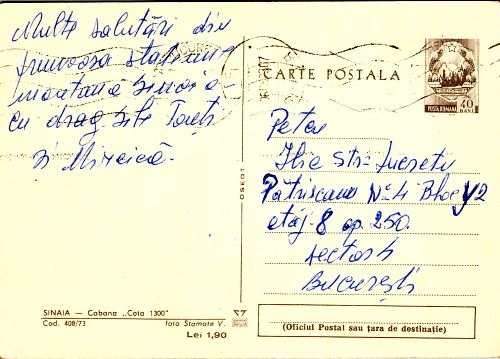 Multe salutări din
frumoasa stațiune
montană Sinaia -
cu drag
și Mircică.
CARTE POSTALA
POSTA ROMANA
40
BANI
Petcu
Ilie str. Lucrețiu
Pătrășcanu No 4 Bloc Y2
etaj 8 ap. 250.
sector 4
București
OSEDT
SINAIA — Cabana „Cota 1300"
Cod. 408/73
foto Stamate V.
Lei 1,90
(Oficiul Postal sau țara de destinație)